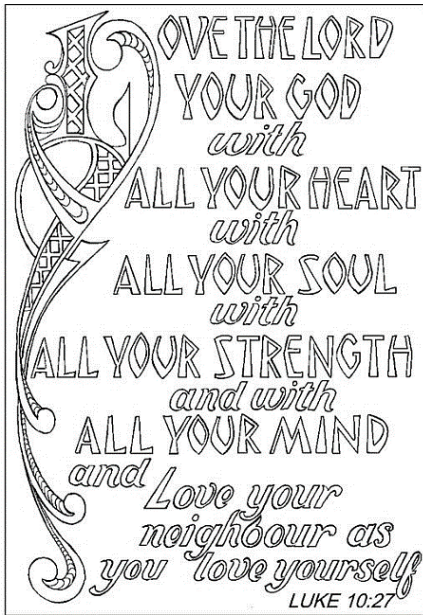 LOVE THE LORD
YOUR GOD
with
ALL YOUR HEART
with
ALL YOUR SOUL
with
ALL YOUR STRENGTH
and with
ALL YOUR MIND
and Love your
neighbour as
you love yourself
LUKE 10:27